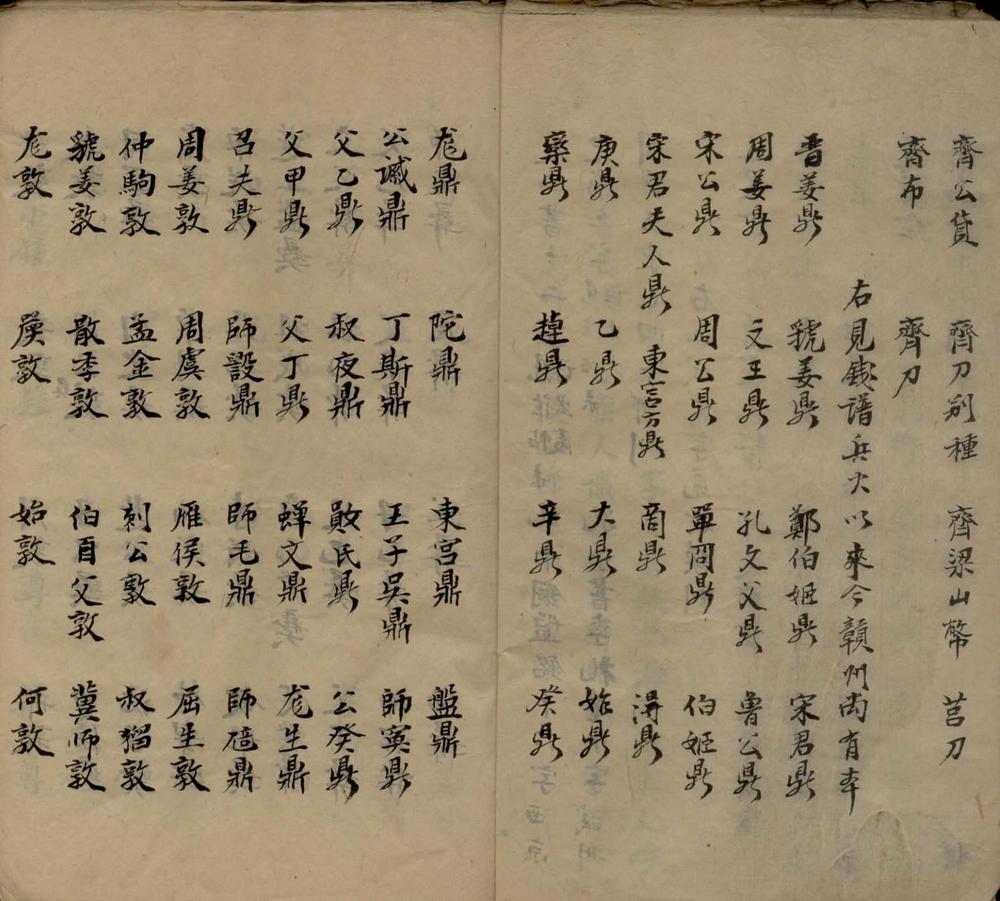 齊公貨　齊刀别種　齊梁山幣　莒刀
齊布　齊刀
右見錢譜兵火以來今贛州尚有本
晉姜鼎　虢姜鼎　鄭伯姬鼎　宋君鼎
周姜鼎　文王鼎　孔文父鼎　魯公鼎
宋公鼎　周公鼎　單冏鼎　伯姬鼎
宋君夫人鼎　東宫方鼎　商鼎　淂鼎
庚鼎　乙鼎　大鼎　始鼎
欒鼎　趠鼎　辛鼎　癸鼎
尨鼎　陀鼎　東宫鼎　盤鼎
公諴鼎　丁斯鼎　王子吳鼎　師寅鼎
父乙鼎　叔夜鼎　敃氏鼎　公癸鼎
父甲鼎　父丁鼎　蟬文鼎　尨生鼎
召夫鼎　師設鼎　師毛鼎　師㝨鼎
周姜敦　周虞敦　雁侯敦　屈生敦
仲駒敦　孟金敦　刺公敦　叔猲敦
虢姜敦　散季敦　伯百父敦　冀師敦
尨敦　敦　始敦　何敦